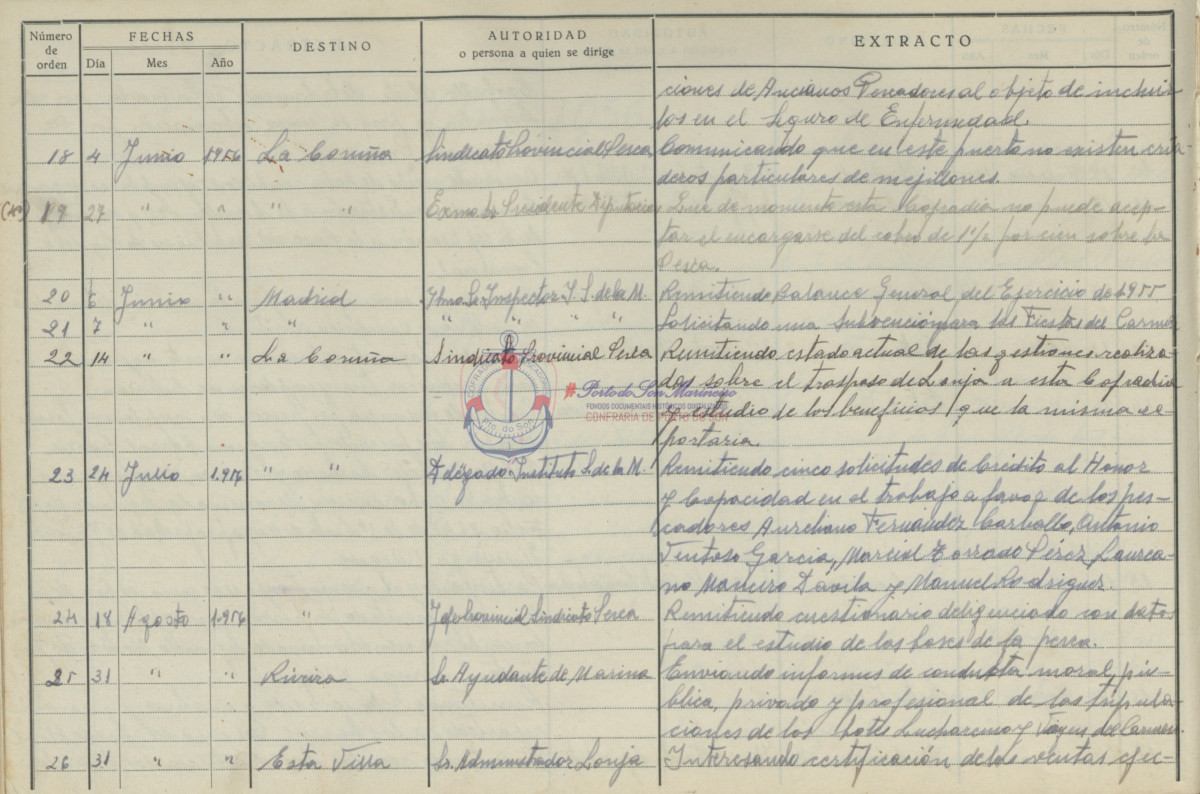 Número de orden FECHAS DESTINO AUTORIDAD o persona a quien se dirige EXTRACTO
Día Mes Año
ciones de Ancianos Pescadores al objeto de incluir
los en el Seguro de Enfermedad.
18 4 Junio 1956 La Coruña Sindicato Provincial Pesca Comunicando que en este puerto no existen cria-
deros particulares de mejillones.
19 27 " " " " Exmo. Sr. Presidente Diputación Que de momento esta Cofradia no puede acep-
tar el encargarse del cobro de 1½ por cien sobre la
Pesca.
20 6 Junio " Madrid Ylmo. Sr. Inspector I. S. de la M. Remitiendo Balance General del Ejercicio de 1955
21 7 " " " " " " " Solicitando una Subvención para las Fiestas del Carmen
22 14 " " La Coruña Sindicato Provincial Pesca Remitiendo estado actual de las gestiones realiza-
das sobre el traspaso de Lonja a esta Cofradia
y estudio de los beneficios que la misma re-
portaria.
23 24 Julio 1.956 " " Delegado Instituto S. de la M. Remitiendo cinco solicitudes de Crédito al Honor
y Capacidad en el trabajo a favor de los pes-
cadores Aureliano Fernández Carballo, Antonio
Ventoso García, Marcial Torrado Pérez, Laurea-
no Maneiro Davila y Manuel Rodriguez.
24 18 Agosto 1.956 " Jefe Provincial Sindicato Pesca Remitiendo cuestionario deligenciado con datos
para el estudio de las bases de la pesca.
25 31 " " Riveira Sr. Ayudante de Marina Enviando informes de conducta moral, pú-
blica, privada y profesional de las tripula-
ciones de los botes y Virgen del Carmen.
26 31 " " Esta Villa Sr. Administrador Lonja Interesando certificación de las ventas efec-
COFRADÍA
Pto. do Son
#Porto do Son Mariñeiro
FONDOS DOCUMENTAIS HISTÓRICOS DIGITALIZADOS
CONFRARÍA DE PORTO DO SON